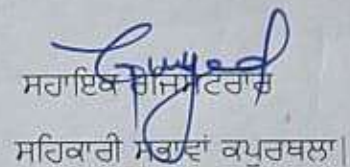 ਸਹਾਇਕ ਰਜਿਸਟਰਾਰ
ਸਹਿਕਾਰੀ ਸਭਾਵਾਂ ਕਪੂਰਥਲਾ|